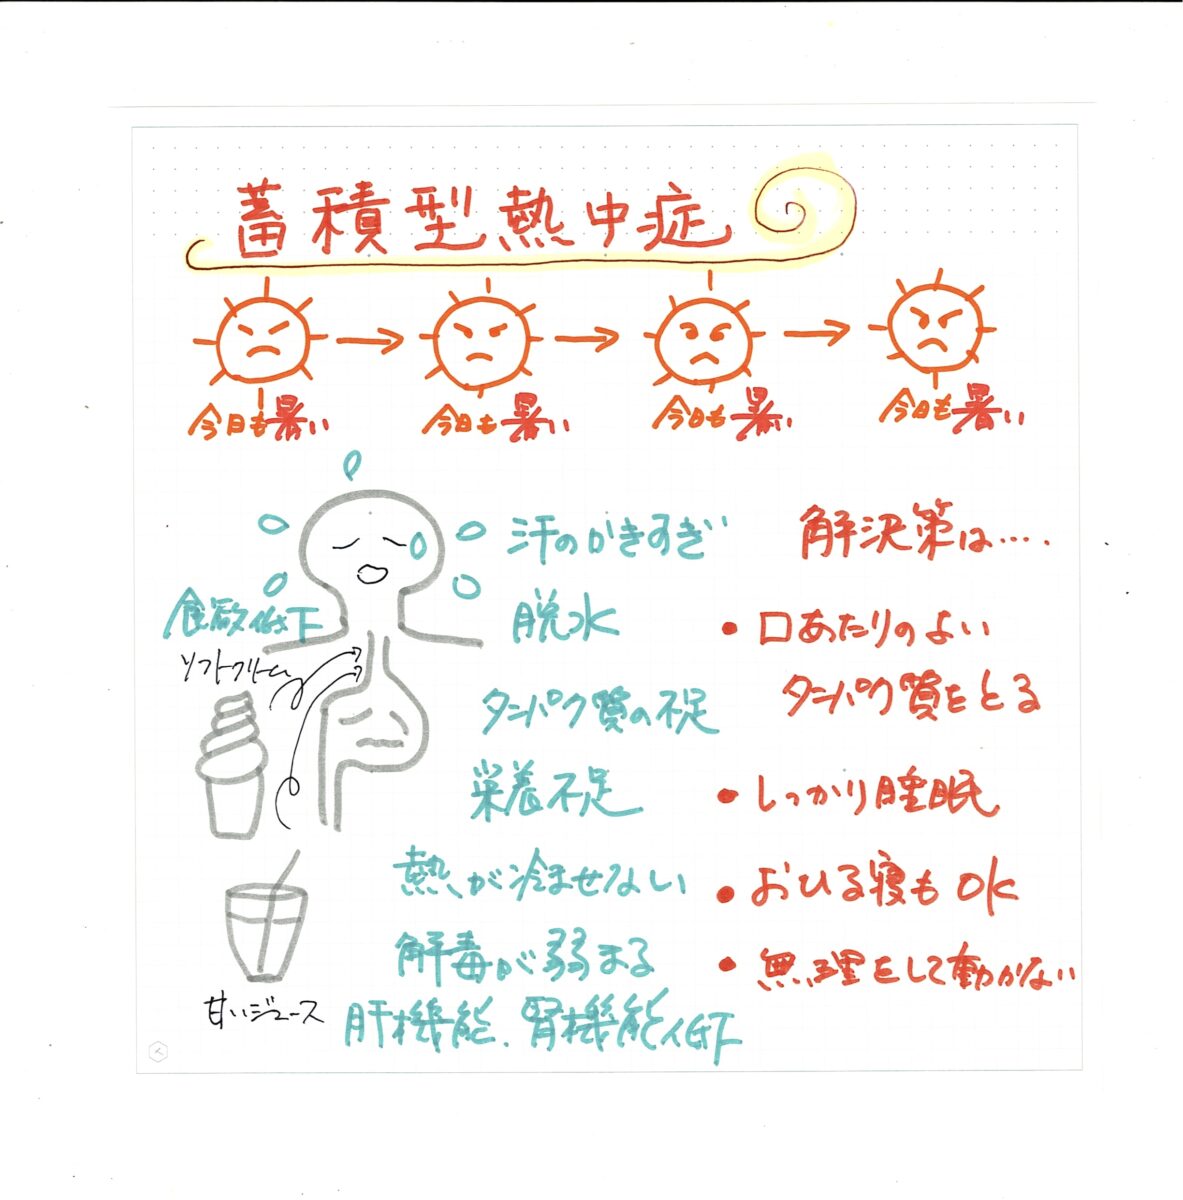 蓄積型熱中症
今日も暑い
今日も暑い
今日も暑い
今日も暑い
汗のかきすぎ
食欲低下
脱水
ソフトクリーム
タンパク質の不足
栄養不足
熱が冷ませない
解毒が弱まる
甘いジュース
肝機能、腎機能低下
解決策は…..
• 口あたりのよい
タンパク質をとる
• しっかり睡眠
• おひる寝もOK
• 無理をして動かない